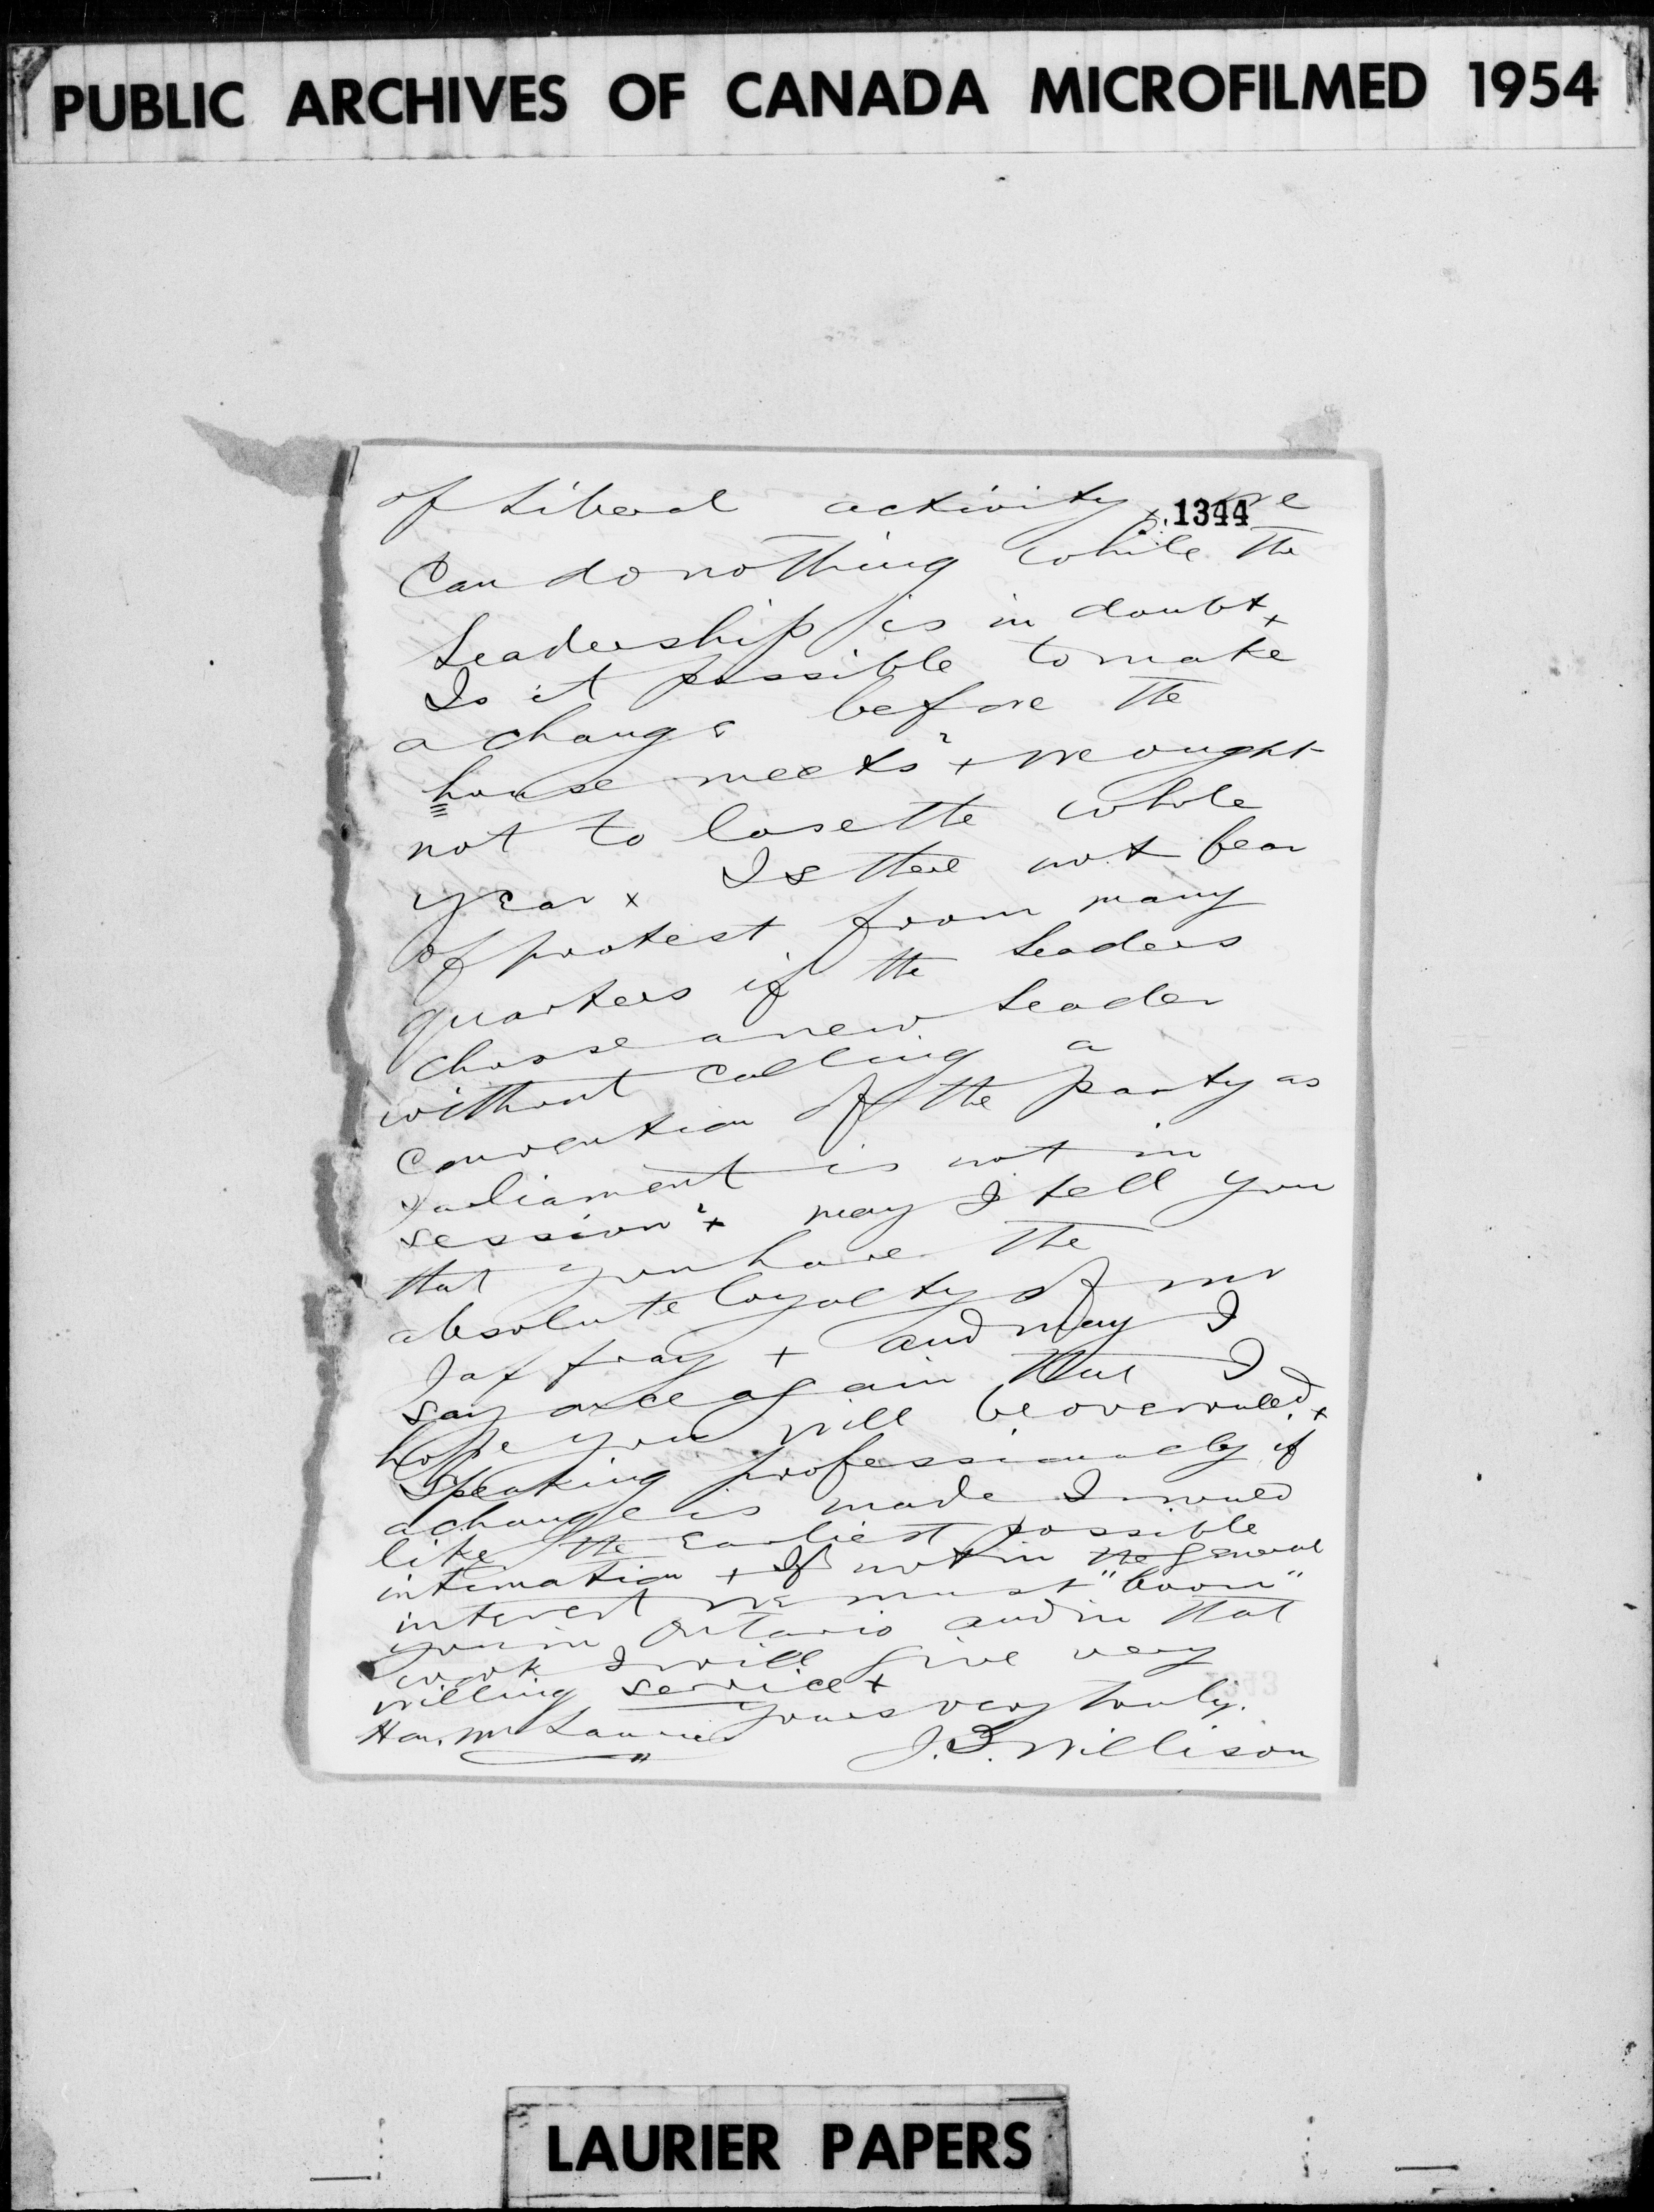 PUBLIC ARCHIVES OF CANADA MICROFILMED 1954
1344
of Liberal activity x we
can do nothing while the
Leadership is in doubt x
Is it possible to make
a change before the
house meets? x We ought
not to lose the whole
year x Is there not fear
of protest from many
quarters if the Leaders
choose a new Leader
without calling a
convention if the party as
Parliament is not in
session? x May I tell you
that you have the
absolute loyalty of Mr
Jaffray x and may I
say once again that I
hope you will be overruled. x
Speaking professionally if
a change is made I would
like the earliest possible
intimation x If not in the general
interest we must "boom"
you in Ontario and in that
work I will give very
willing service x
Yours very truly.
Hon. Mr Laurier
J.S. Willison
LAURIER PAPERS